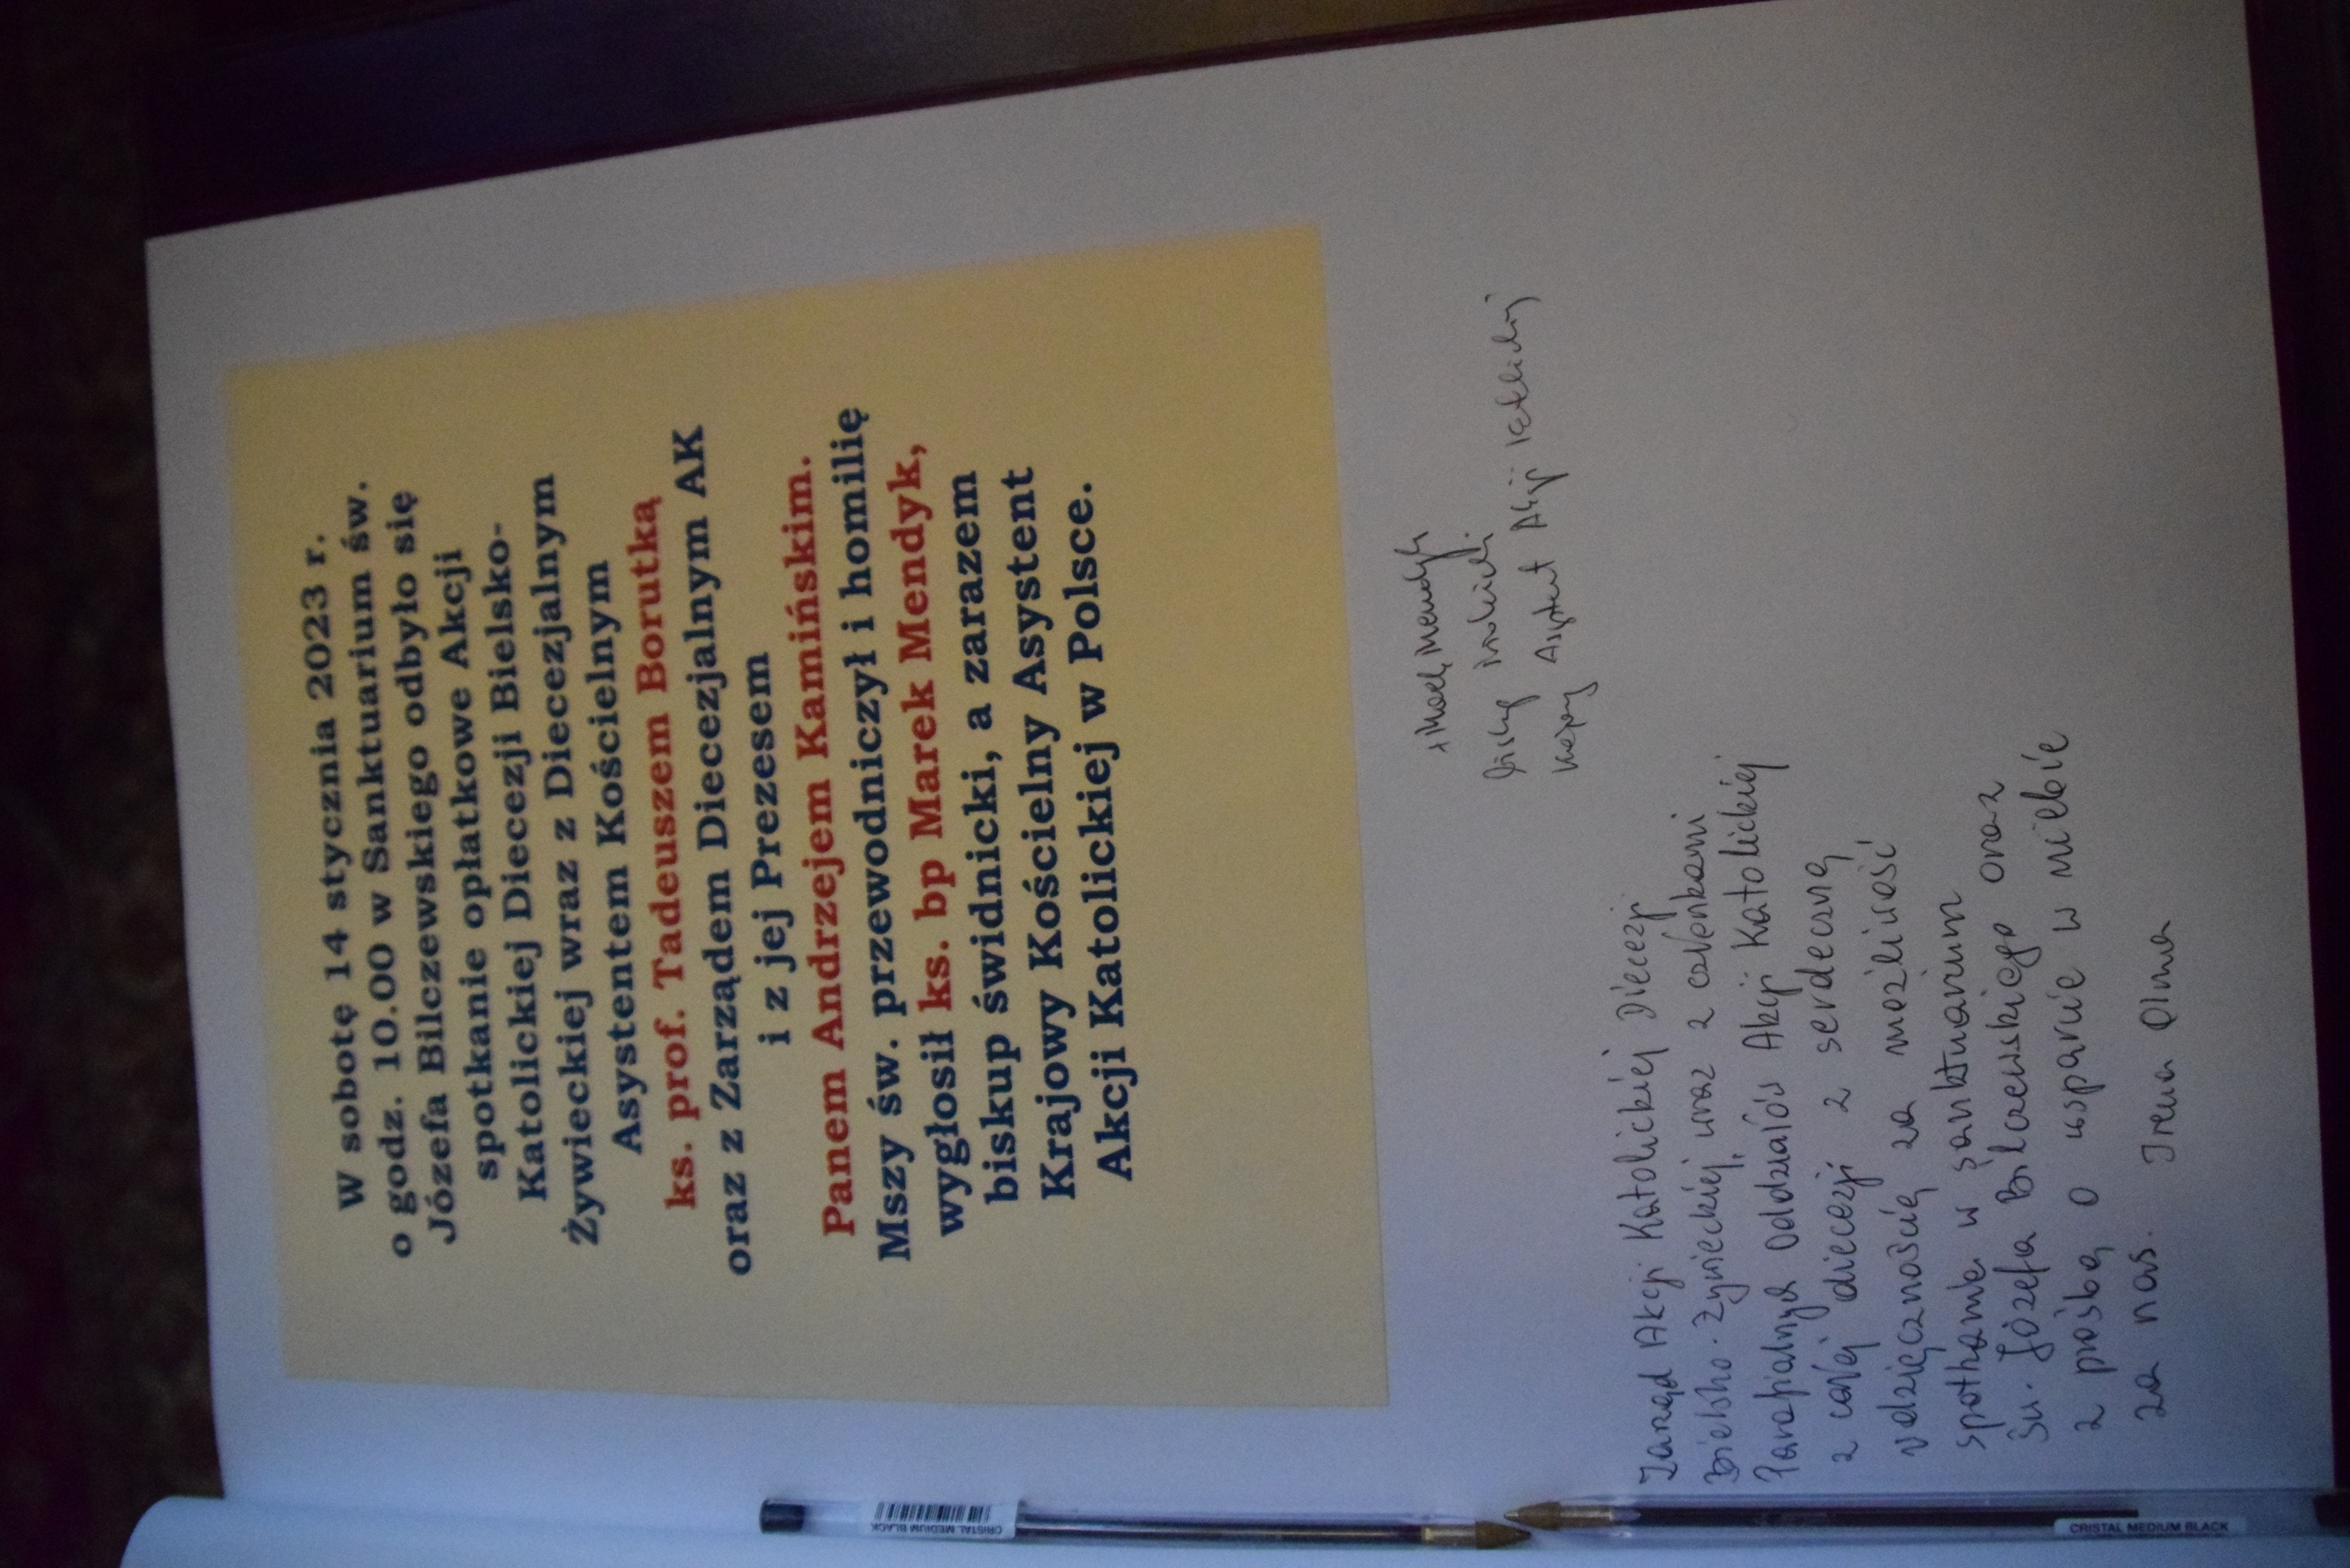 W sobotę 14 stycznia 2023 r.
o godz. 10.00 w Sanktuarium św.
Józefa Bilczewskiego odbyło się
spotkanie opłatkowe Akcji
Katolickiej Diecezji Bielsko-
Żywieckiej wraz z Diecezjalnym
Asystentem Kościelnym
ks. prof. Tadeuszem Borutką
oraz z Zarządem Diecezjalnym AK
i z jej Prezesem
Panem Andrzejem Kamińskim.
Mszy św. przewodniczył i homilię
wygłosił ks. bp Marek Mendyk,
biskup świdnicki, a zarazem
Krajowy Kościelny Asystent
Akcji Katolickiej w Polsce.
+ Marek Mendyk
Asystent Akcji Katolickiej
Zarząd Akcji Katolickiej Diecezji
Bielsko-Żywieckiej, wraz z członkami
Parafialnych Oddziałów Akcji Katolickiej
z całej diecezji z serdeczną
wdzięcznością za możliwość
spotkania w sanktuarium
św. Józefa Bilczewskiego oraz
z prośbą o wsparcie w niebie
za nas. Irena Olma
CRISTAL MEDIUM BLACK
CRISTAL MEDIUM BLACK